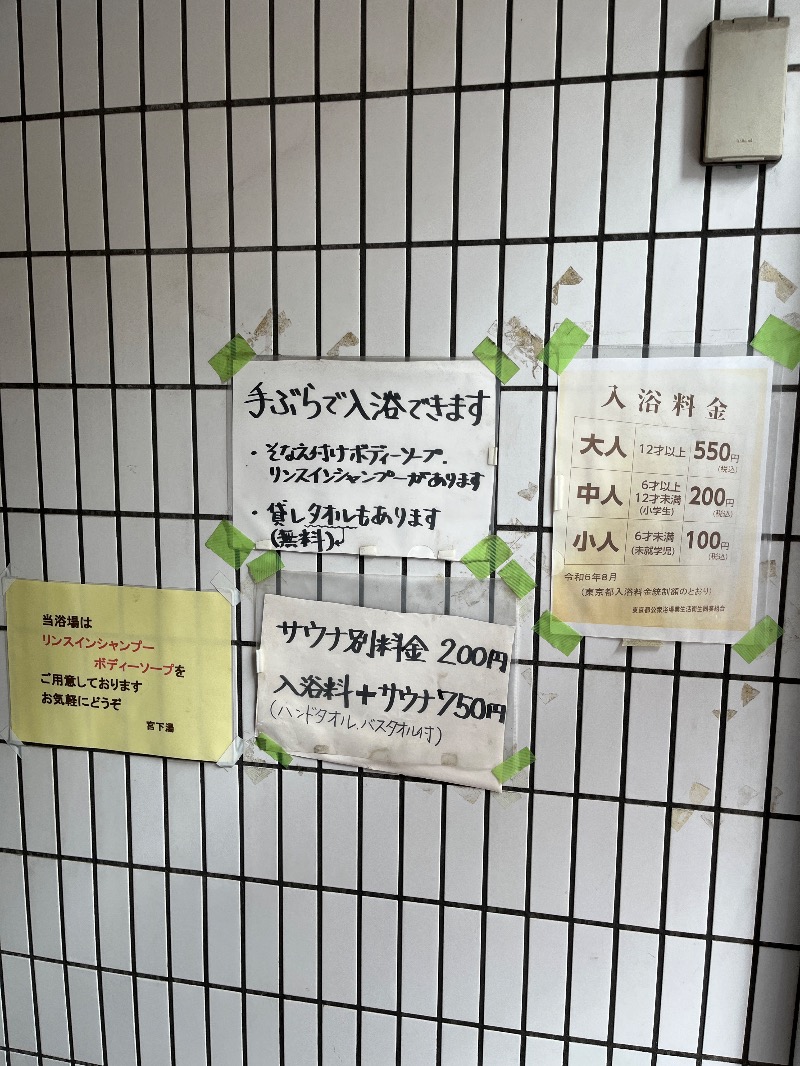 手ぶらで入浴できます
・そなえ付けボディーソープ.
リンスインシャンプーがあります
・貸しタオルもあります
(無料)
入浴料金
大人 12才以上 550円(税込)
中人 6才以上12才未満(小学生) 200円(税込)
小人 6才未満(未就学児) 100円(税込)
令和6年8月
(東京都入浴料金統制額のとおり)
東京都公衆浴場業生活衛生同業組合
当浴場は
リンスインシャンプー
ボディーソープを
ご用意しております
お気軽にどうぞ
宮下湯
サウナ別料金 200円
入浴料+サウナ750円
(ハンドタオル.バスタオル付)